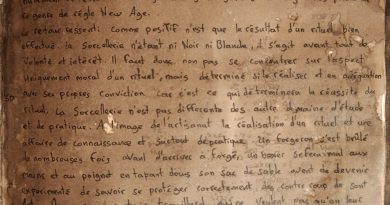 ce genre de règle New Age.
retour ressenti comme positif n'est que le résultat d'un rituel bien
effectué. La sorcellerie n'étant ni Noir ni Blanche, il s'agit avant tout de
volonté et intérêt. Il faut donc non pas se concentrer sur l'aspect
uniquement moral d'un rituel, mais déterminé si le réalisés et en adéquation
avec ses propres Conviction. Car c'est ce qui déterminera la réussite du
rituel. La Sorcellerie n'est pas différente des autre domaine d'étude
et de pratique. A l'image de l'artisanat la réalisation d'un rituel et une
affaire de connaissance et surtout de pratique. Un forgeron s'est brûlé
de nombreuses fois avant d'arriver à forgé, un boxer se ferai mal aux
mains et au poignet en tapant dans son sac de sable avant de devenir
expérimenté de savoir se protéger correctement, des contre coup de sont
veulent pas qu'on leur